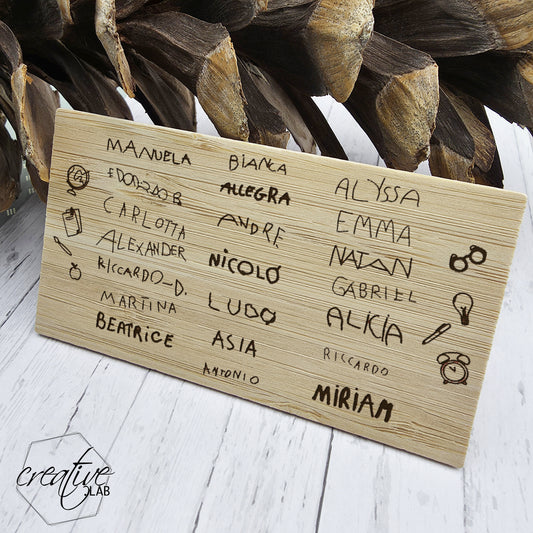 MANUELA
EDOARDO B.
CARLOTTA
ALEXANDER
RICCARDO-D.
MARTINA
BEATRICE
BIANCA
ALLEGRA
ANDRE
NICOLÓ
LUDO
ASIA
ANTONIO
ALYSSA
EMMA
NATAN
GABRIEL
ALICIA
RICCARDO
MIRIAM
creative
LAB